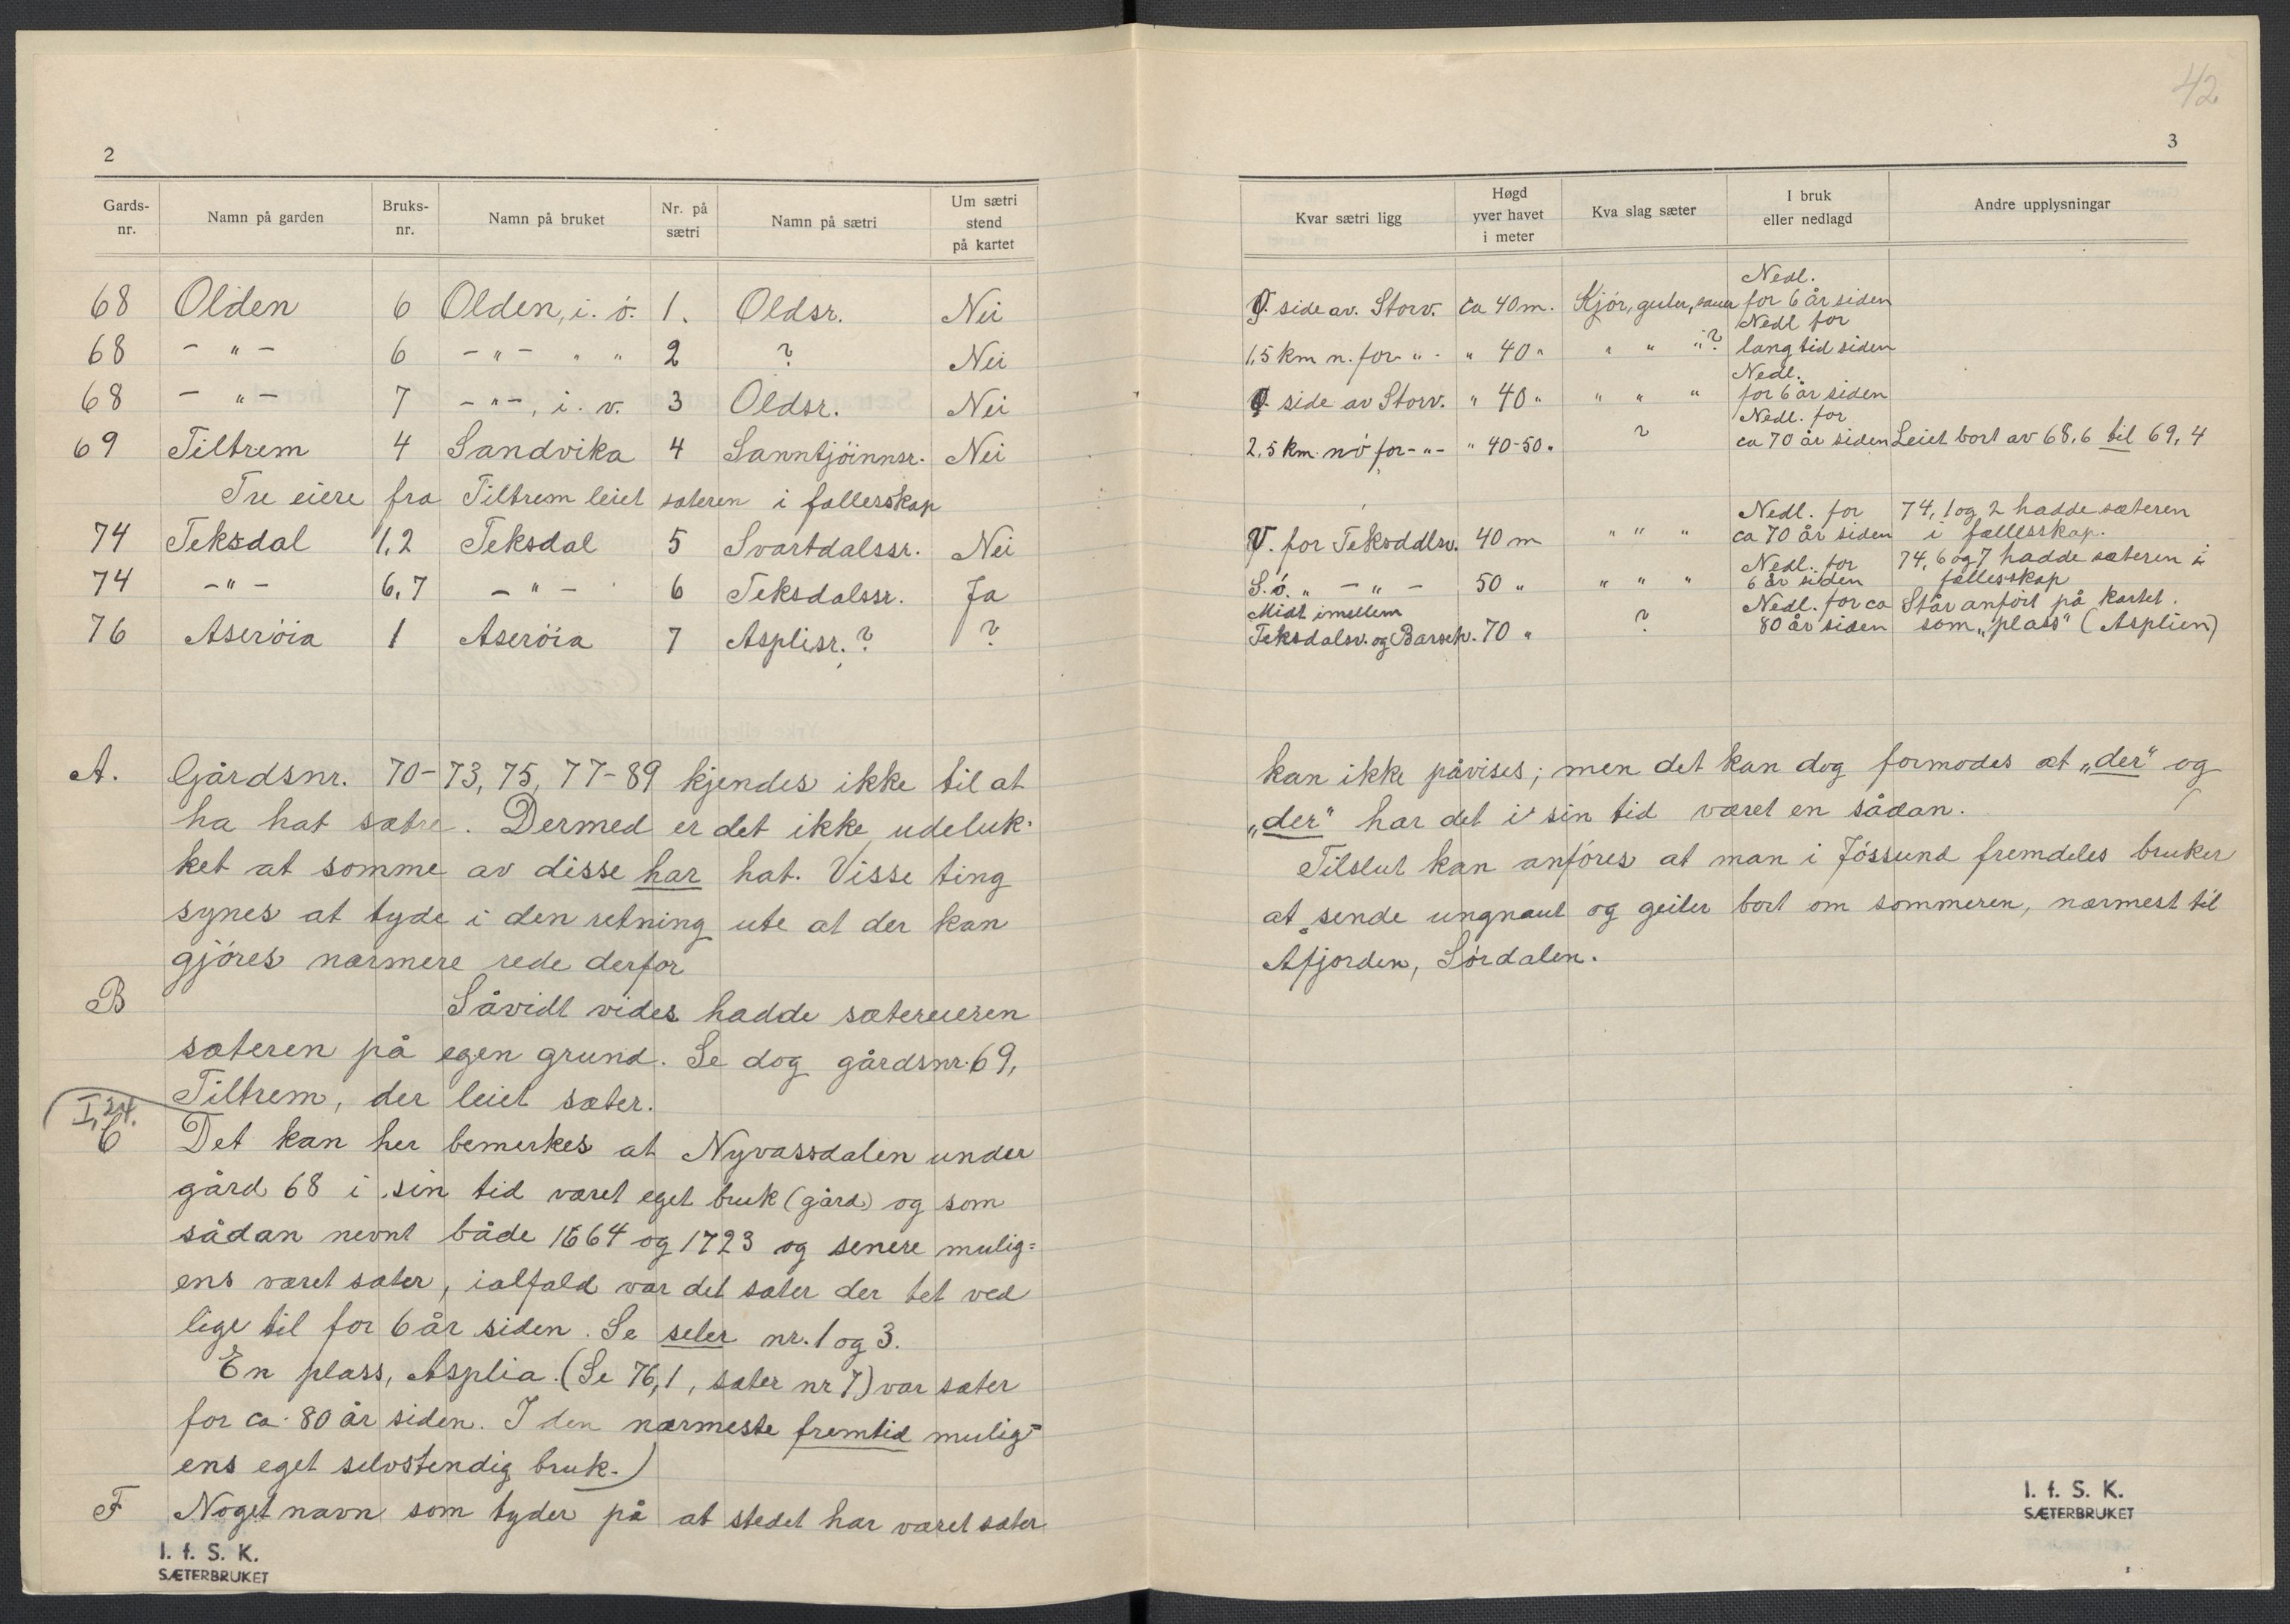 2
Gards-nr. Namn på garden Bruks-nr. Namn på bruket Nr. på sætri Namn på sætri Um sætri stend på kartet
68 Olden 6 Olden, i. ö. 1. Oldsr. Nei
68 - " - 6 - " - " " 2 ? Nei
68 - " - 7 - " -, i. v. 3 Oldsr. Nei
69 Tiltrem 4 Sandvika 4 Sanntjöinnsr. Nei
Tre eiere fra Tiltrem leiet sæteren i fællesskap
74 Teksdal 1,2 Teksdal 5 Svartdalssr. Nei
74 - " - 6,7 - " - 6 Teksdalssr. Ja
76 Aseröia 1 Aseröia 7 Asplisr.? ?
A. Gårdsnr. 70-73, 75, 77-89 kjendes ikke til at
ha hat sætre. Dermed er det ikke udeluk-
ket at somme av disse har hat. Visse ting
synes at tyde i den retning ute at der kan
gjöres nærmere rede derfor
B Såvidt vides hadde sætereieren
sæteren på egen grund. Se dog gårdsnr. 69,
Tiltrem, der leiet sæter.
I, 24.
C Det kan her bemerkes at Nyvassdalen under
gård 68 i sin tid været eget bruk (gård) og som
sådan nevnt både 1664 og 1723 og senere mulig=
ens været sæter, ialfald var det sæter der tet ved
lige til for 6 år siden. Se seter nr. 1 og 3.
En plass, Asplia. (Se 76,1, sæter nr 7) var sæter
for ca. 80 år siden. I den nærmeste fremtid mulig=
ens eget selvstendig bruk.)
F Noget navn som tyder på at stedet har været sæter
I. f. S. K.
SÆTERBRUKET
42
3
Kvar sætri ligg Høgd yver havet i meter Kva slag sæter I bruk eller nedlagd Andre upplysningar
Ø. side av. Storv. ca 40 m. Kjör, geiter, sauer Nedl. for 6 år siden
1,5 km n. for - " - " 40 " " " "? Nedl for lang tid siden
Ø. side av Storv. " 40 " " " " Nedl. for 6 år siden
2,5 km. nö for - " - " 40-50 " ? Nedl. for ca 70 år siden Leiet bort av 68,6 til 69,4
V. for Teksdalsv. 40 m " " " Nedl. for ca 70 år siden 74, 1 og 2 hadde sæteren i fællesskap.
S.ö. " - " - 50 " " " " Nedl. for 6 år siden 74, 6 og 7 hadde sæteren i fællesskap
Midt imellem Teksdalsv. og Barsetv. 70 " ? Nedl. for ca 80 år siden Står anfört på kartet. som „plass" (Asplien)
kan ikke påvises; men det kan dog formodes at „der" og
„der" har det i sin tid været en sådan.
Tilslut kan anföres at man i Jössund fremdeles bruker
at sende ungnaut og geiter bort om sommeren, nærmest til
Åfjorden, Sördalen.
I. f. S. K.
SÆTERBRUKET